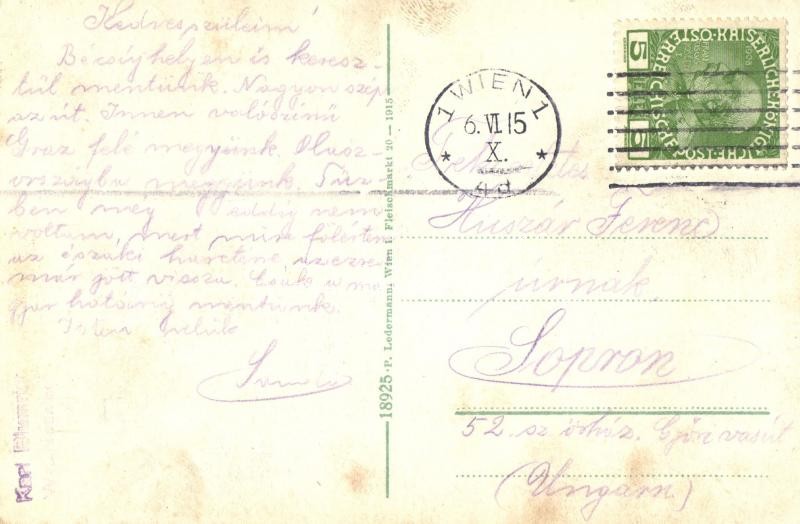 Kedves szüleim!
Bécsújhelyen is keresz-
tül mentünk. Nagyon szép
az út. Innen valószinű
Graz felé megyünk. Olasz-
országba megyünk. Tűz-
ben még eddig nem
voltam, mert mire fölértem
az északi harctérre az ezred
már jött vissza. Csak a ma-
gyar határig mentünk.
Isten velük
18925 · P. Ledermann, Wien I. Fleischmarkt 20 — 1915
1 WIEN 1
6. VI. 15
X.
KAISERLICH·KÖNIGLICHE·ÖSTERREICHISCHE·POST
1908
5
5
Huszár Ferenc
úrnak
Sopron
52. sz. őrház. Győri vasút
(Ungarn)